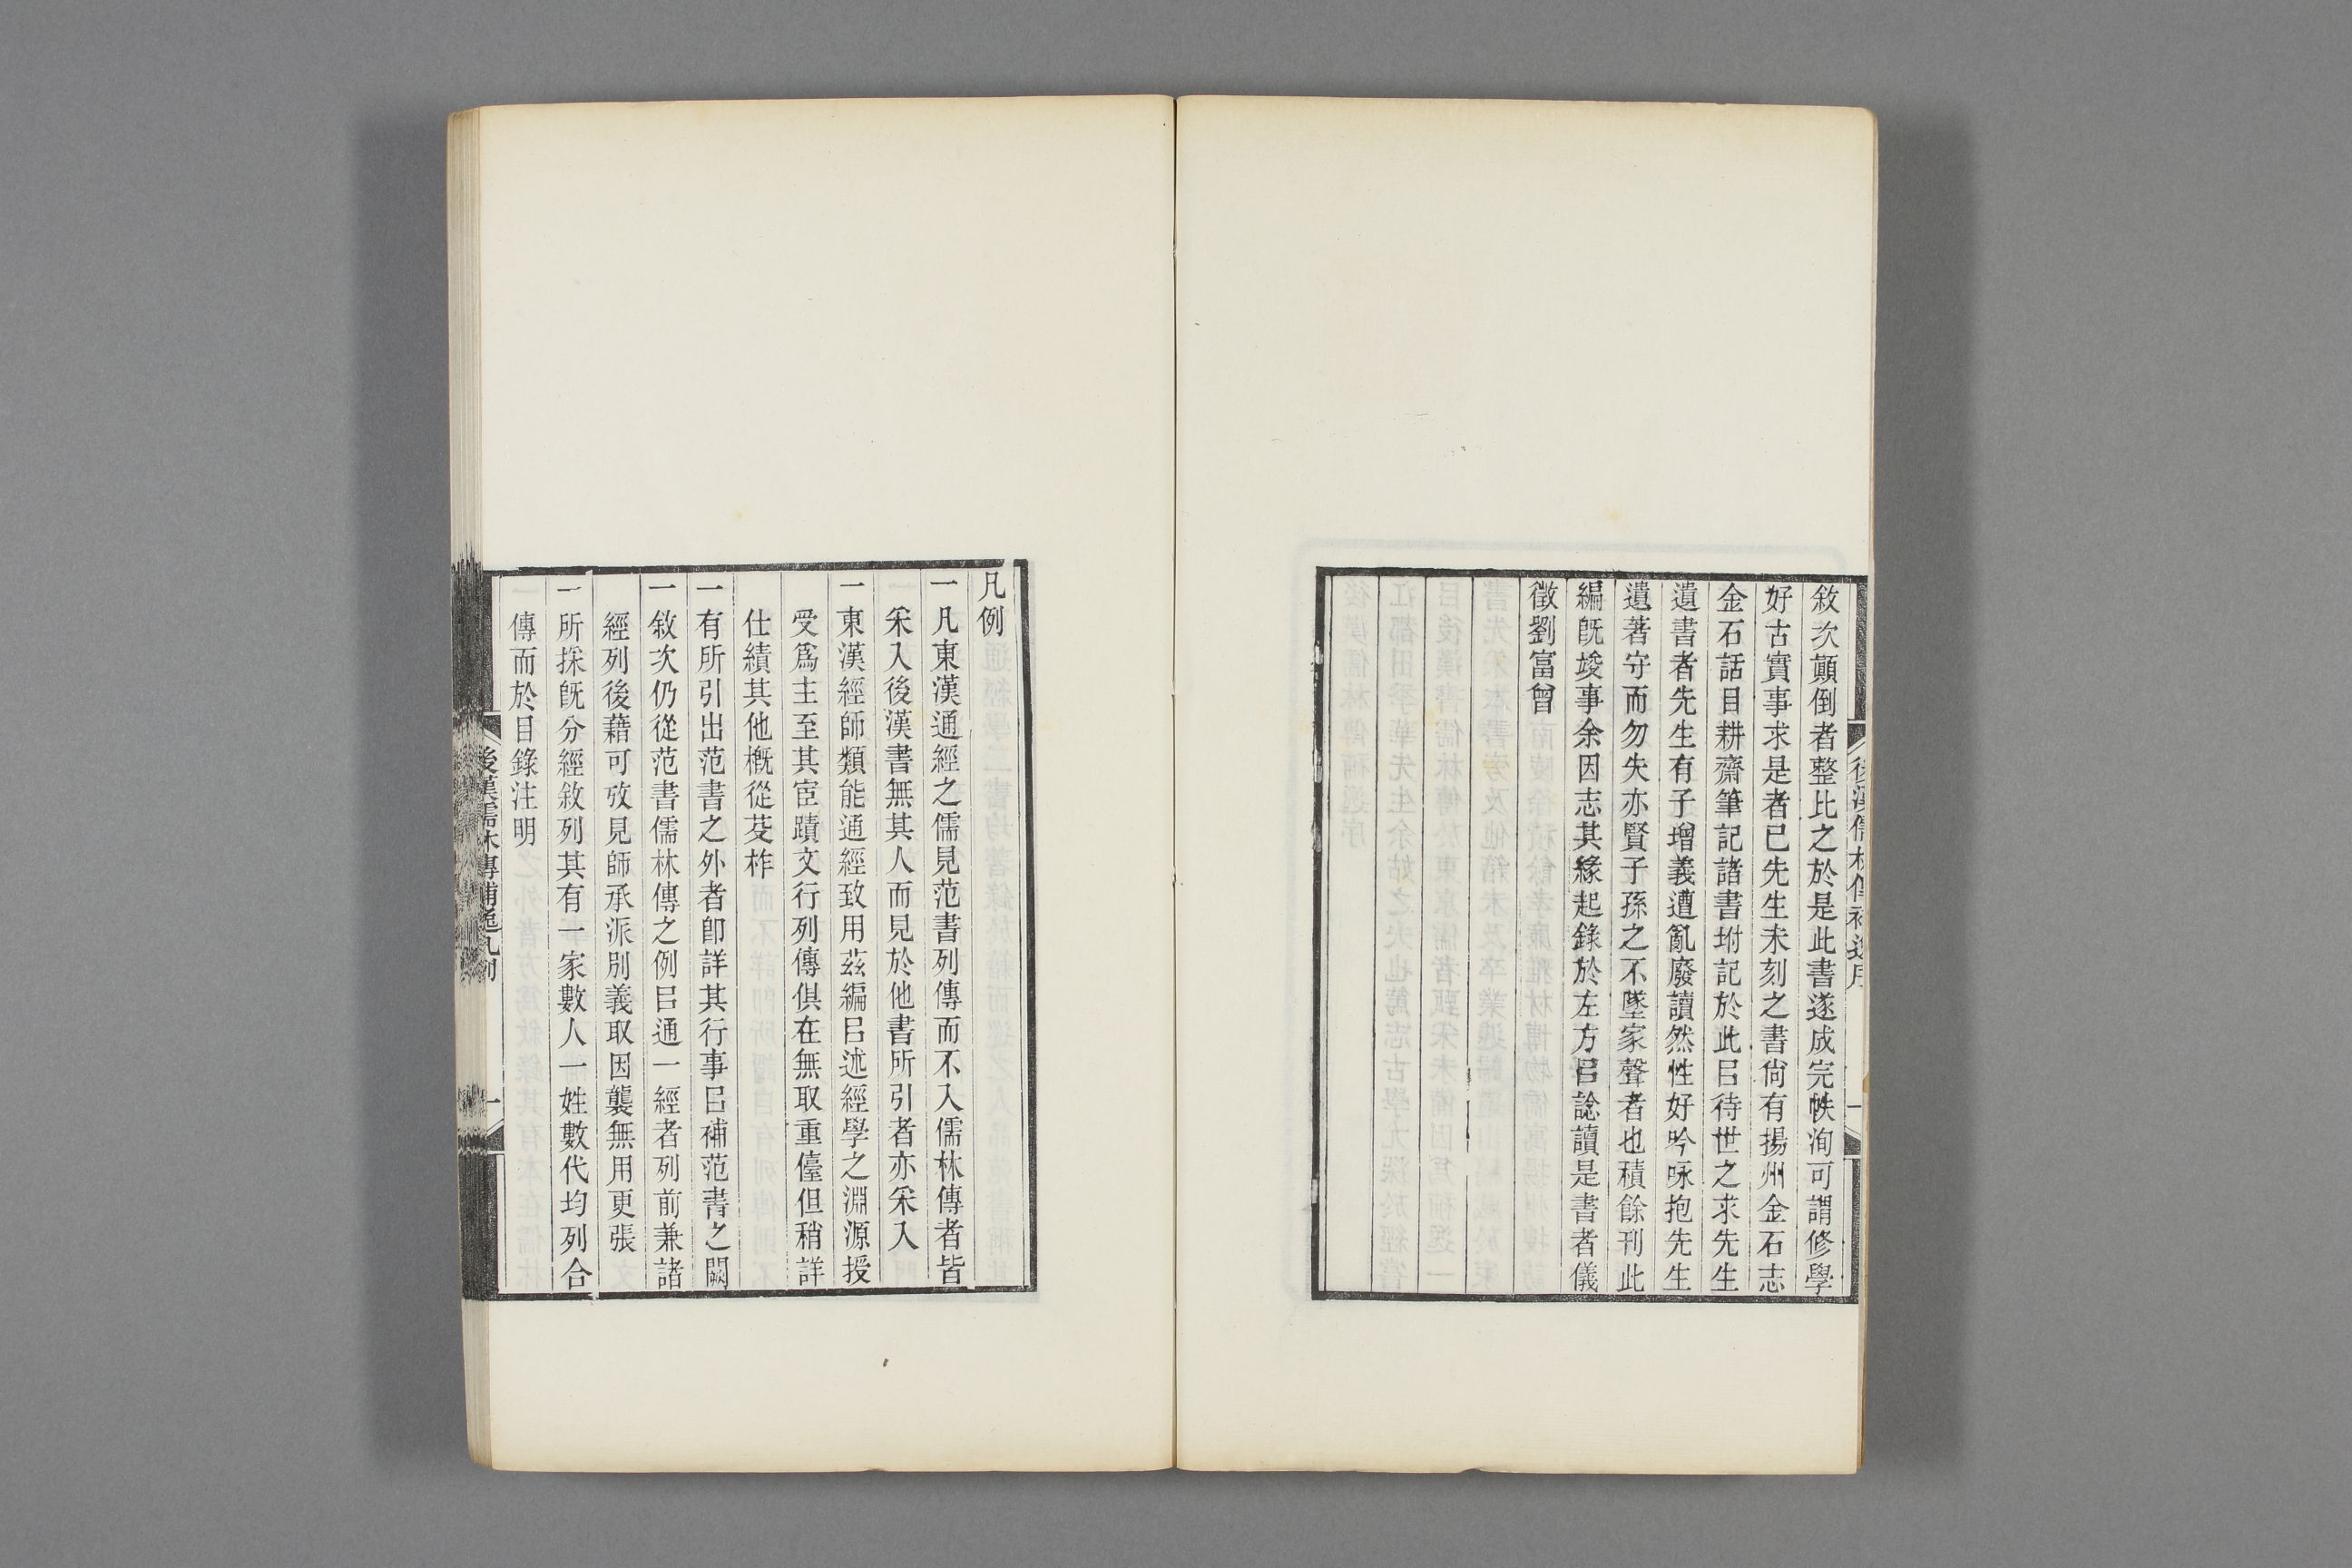 敘次顚倒者整比之於是此書遂成完帙洵可謂修學
好古實事求是者已先生未刻之書尙有揚州金石志
金石話目耕齋筆記諸書坿記於此㠯待世之求先生
遺書者先生有子增義遭亂廢讀然性好吟咏抱先生
遺著守而勿失亦賢子孫之不墜家聲者也積餘刊此
編旣竣事余因志其緣起錄於左方㠯諗讀是書者儀
徵劉富曾
凡例
一凡東漢通經之儒見范書列傳而不入儒林傳者皆
采入後漢書無其人而見於他書所引者亦采入
一東漢經師類能通經致用茲編㠯述經學之淵源授
受爲主至其宦蹟文行列傳俱在無取重儓但稍詳
仕績其他槪從芟柞
一有所引出范書之外者卽詳其行事㠯補范書之闕
一敘次仍從范書儒林傳之例㠯通一經者列前兼諸
經列後藉可攷見師承派別義取因襲無用更張
一所採旣分經敘列其有一家數人一姓數代均列合
傳而於目錄注明
後漢儒林傳補逸凡例
一